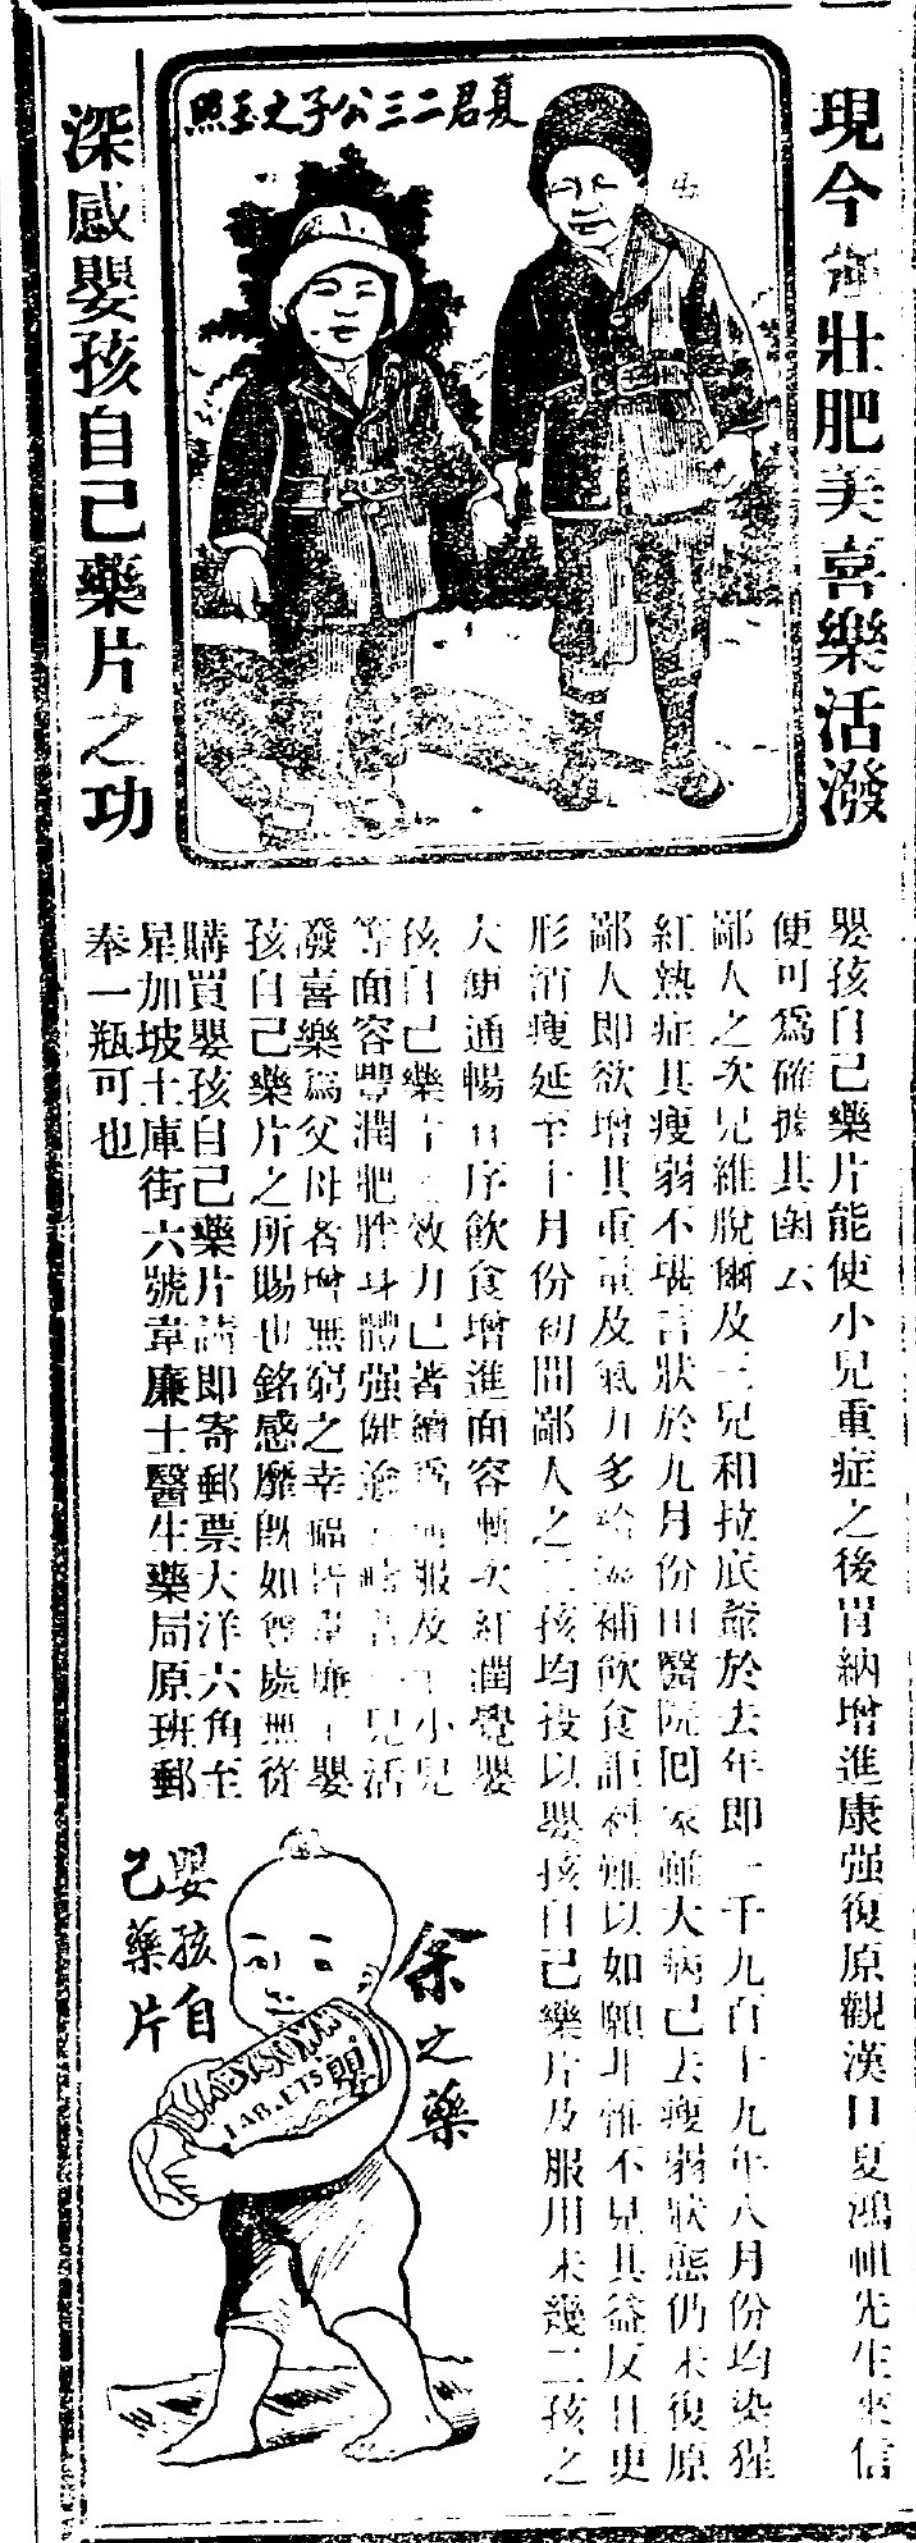 現今壯肥美喜樂活潑
夏君二三公子之玉照
深感嬰孩自己藥片之功
嬰孩自己藥片能使小兒重症之後胃納增進康强復原觀漢口夏鴻先生來信
便可爲確據其函云
鄙人之次兒維脫爾及三兒和拉底爺於去年即一千九百十九年八月份均染猩
紅熱症其瘦弱不堪言狀於九月份由醫院囘家雖大病已去瘦弱狀態仍未復原
鄙人即欲增其重量及氣力多給滋補飲食詎料難以如願非惟不見其益反且更
形消瘦延至十月份初間鄙人之二孩均投以嬰孩自己藥片及服用未幾二孩之
大便通暢有序飲食增進面容漸次紅潤覺嬰
孩自己藥片之效力已著續爲服及小兒
等面容豐潤肥胖身體强健兒活
潑喜樂爲父母者增無窮之幸福皆韋廉士嬰
孩自己藥片之所賜也銘感靡既如尊處無從
購買嬰孩自己藥片請即寄郵票大洋六角至
星加坡土庫街六號韋廉士醫生藥局原班郵
奉一瓶可也
余之藥
嬰孩自
己藥片
BABY'S OWN
TABLETS